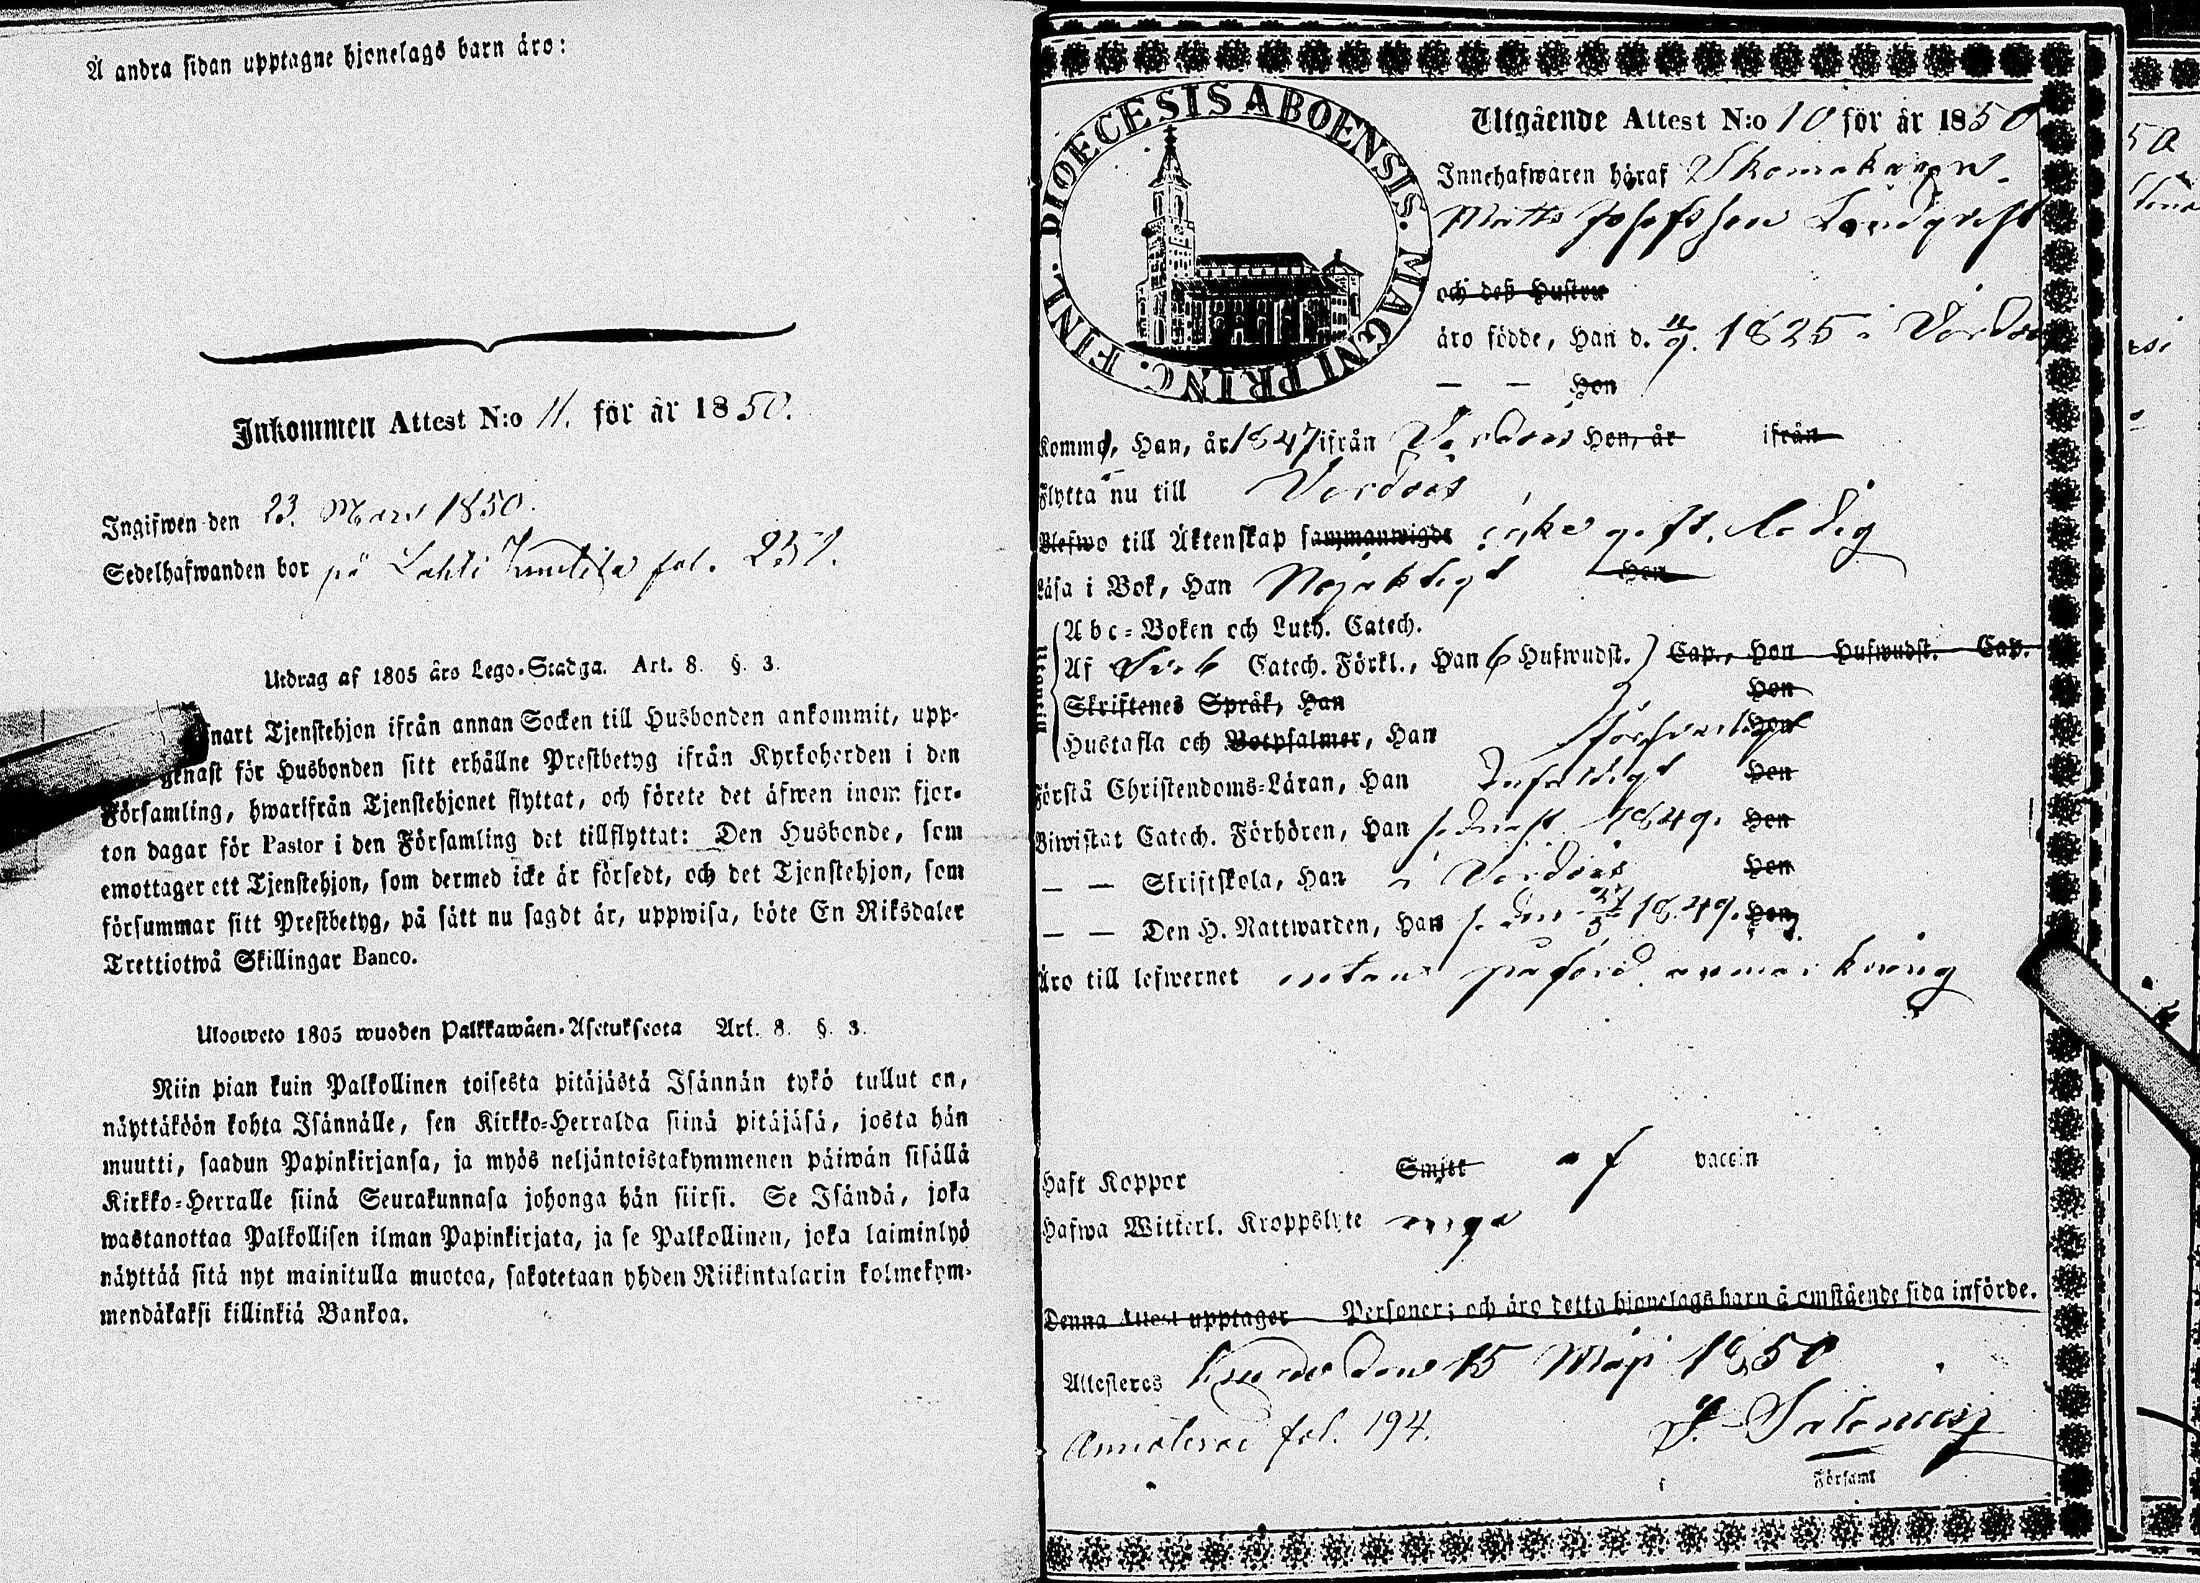 Å andra sidan upptagne hjonelags barn äro:
Inkommen Attest N:o 11. för år 1850.
Ingifwen den 23. Mars 1850.
Sedelhafwanden bor på Lahti fol. 252.
Utdrag af 1805 års Lego-Stadga. Art. 8. §. 3.
nart Tjenstehjon ifrån annan Socken till Husbonden ankommit, upp-
genast för Husbonden sitt erhållne Prestbetyg ifrån Kyrkoherden i den
Församling, hwarifrån Tjenstehjonet flyttat, och förete det äfwen inom fjor-
ton dagar för Pastor i den Församling det tillflyttat: Den Husbonde, som
emottager ett Tjenstehjon, som dermed icke är försedt, och det Tjenstehjon, som
försummar sitt Prestbetyg, på sätt nu sagdt är, uppwisa, böte En Riksdaler
Trettiotwå Skillingar Banco.
Ulosweto 1805 wuoden Palkkawäen-Asetuksesta Art. 8. §. 3.
Niin pian kuin Palkollinen toisesta pitäjästä Isännän tykö tullut on,
näyttäköön kohta Isännälle, sen Kirkko-Herralda siinä pitäjäsä, josta hän
muutti, saadun Papinkirjansa, ja myös neljäntoistakymmenen päiwän sisällä
Kirkko-Herralle siinä Seurakunnasa johonga hän siirsi. Se Isändä, joka
wastanottaa Palkollisen ilman Papinkirjata, ja se Palkollinen, joka laiminlyö
näyttää sitä nyt mainitulla muotoa, sakotetaan yhden Riikintalarin kolmekym-
mendäkaksi killinkiä Bankoa.
DIOECESIS ABOENSIS. MAGNI PRINC. FINL.
Utgående Attest N:o 10 för år 1850
Innehafwaren häraf Skomakaren
Matts Josefsson Landqvist
och deß Hustru
äro födde, Han d. 11/9. 1825 i Vårdö
— — Hon
Komme, Han, år 1847 ifrån Vårdö Hon, år ifrån
Flytta nu till Vårdö
Blefwo till Äktenskap sammanwigde icke gift, ledig
Läsa i Bok, Han Nöjaktigt Hon
Abc-Boken och Luth. Catech.
Af Sveb Catech. Förkl., Han 6 Hufwudst. Cap., Hon Hufwudst. Cap.
Skriftenes Språk, Han Hon
Hustafla och Botpsalmer, Han Hon
Förstå Christendoms-Läran, Han Enfaldigt Hon
Biwistat Catech. Förhören, Han senast 1849. Hon
— — Skriftskola, Han i Vårdö Hon
— — Den H. Nattwarden, Han s. den 27/5 1849. Hon
Äro till lefwernet utan påförd anmärkning
Haft Koppor Smitt af vaccin
Hafwa Witterl. Kroppslyte inga
Denna Attest upptager Personer; och äro detta hjonelags barn å omstående sida införde.
Attesteras den 15 Maji 1850
Annoterad fol. 194.
Församl